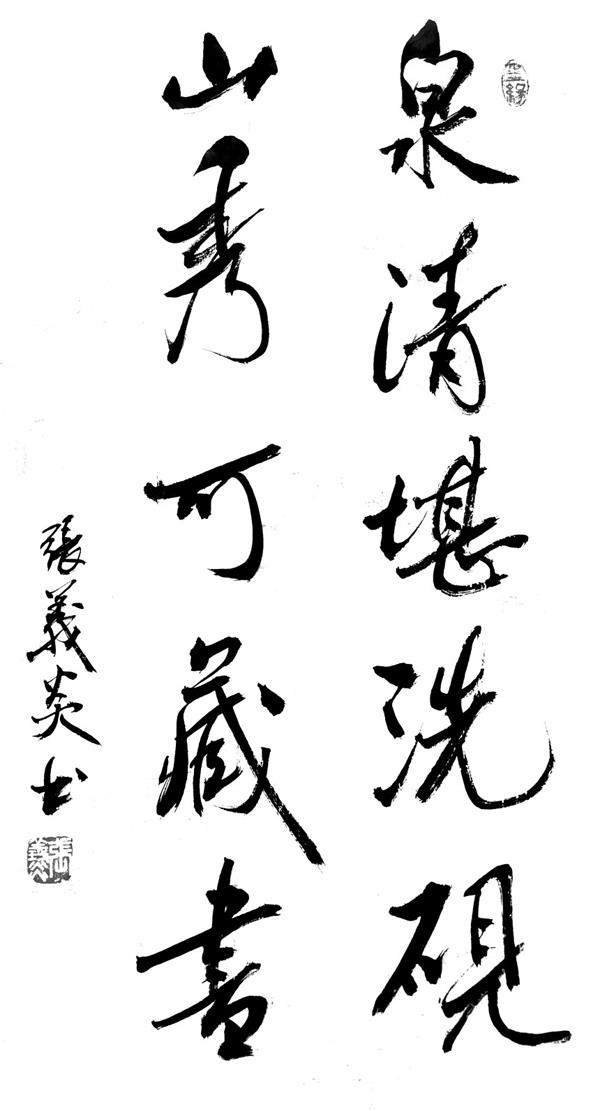 泉清堪洗硯
山秀可藏書
張義炎书